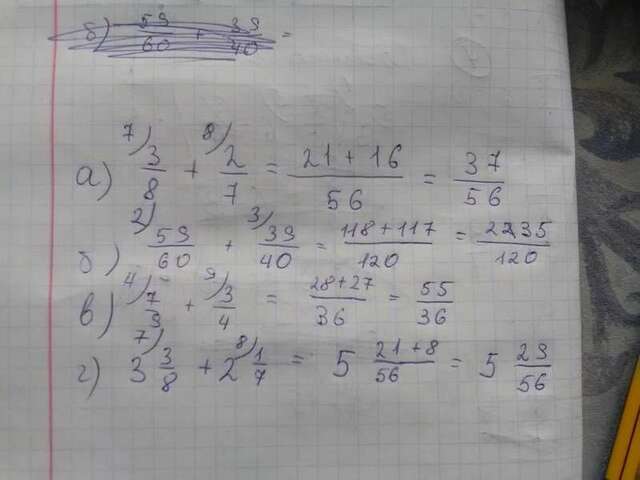 б) 59/60 + 39/40 =
а) 7) 3/8 + 8) 2/7 = 21 + 16/56 = 37/56
б) 2) 59/60 + 3) 39/40 = 118 + 117/120 = 2235/120
в) 4) 7/9 + 9) 3/4 = 28 + 27/36 = 55/36
г) 7) 3 3/8 + 8) 2 1/7 = 5 21 + 8/56 = 5 29/56